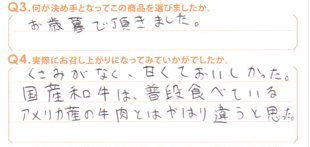 Q3.何が決め手となってこの商品を選びましたか。
お歳暮で頂きました。
Q4.実際にお召し上がりになってみていかがでしたか。
くさみがなく、甘くておいしかった。
国産和牛は、普段食べている
アメリカ産の牛肉とはやはり違うと思った。